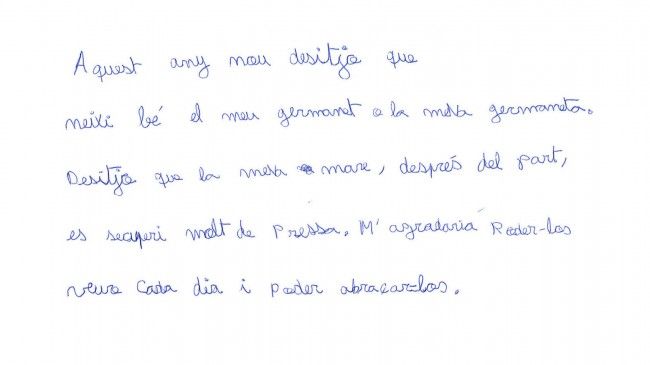 Aquest any nou desitjo que
neixi bé el meu germanet o la meva germaneta.
Desitjo que la meva mare, després del part,
es recuperi molt de pressa. M'agradaria Poder-los
veure Cada dia i poder abraçar-los.